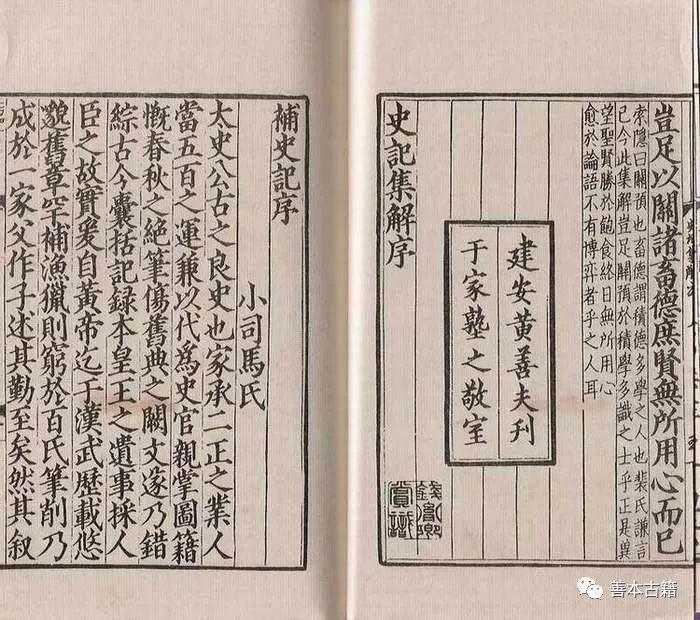 豈足以關諸畜德庶賢無所用心而已
索隱曰關預也畜德謂積德多學之人也裴氏謙言
已今此集解豈足關預於積學多識之士乎正是冀
望聖賢勝於飽食終日無所用心
愈於論語不有博弈者乎之人耳
建安黃善夫刊
于家塾之敬室
史記集解序
補史記序
小司馬氏
太史公古之良史也家承二正之業人
當五百之運兼以代爲史官親掌圖籍
慨春秋之絕筆傷舊典之闕文遂乃錯
綜古今囊括記録本皇王之遺事採人
臣之故實爰自黃帝迄于漢武歷載悠
邈舊章罕補漁獵則窮於百氏筆削乃
成於一家父作子述其勤至矣然其叙
善本古籍